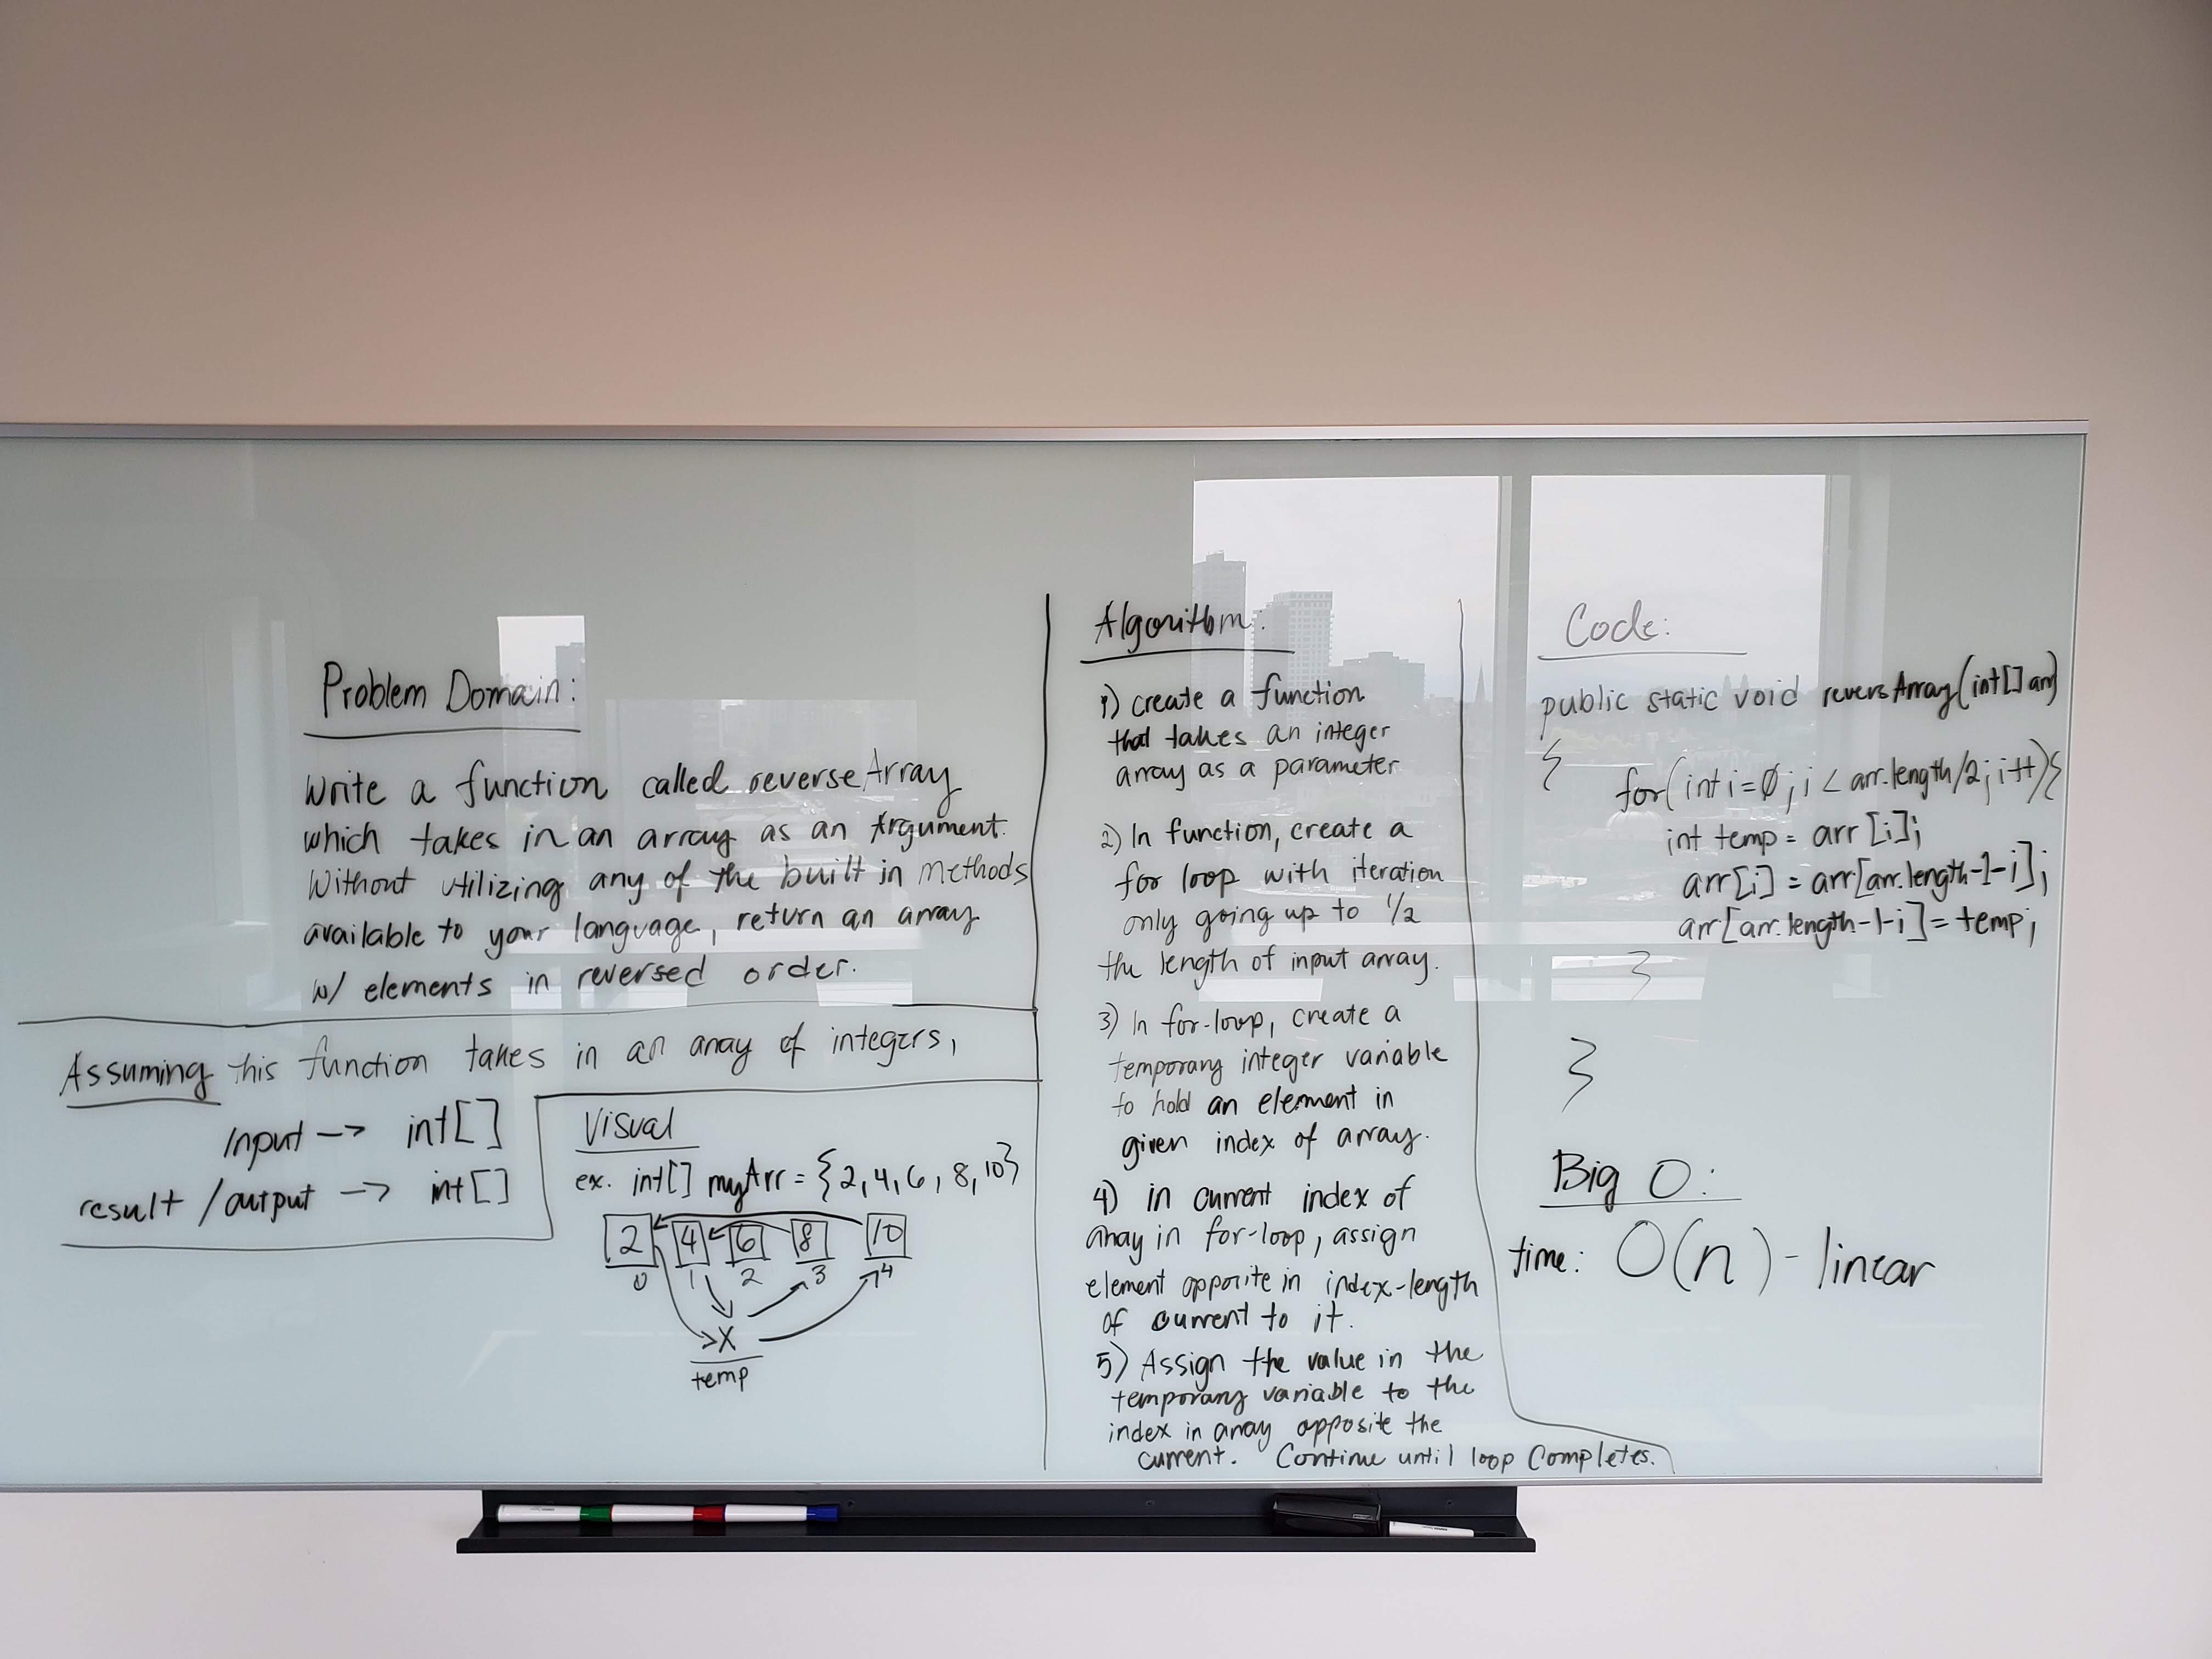 Problem Domain:
Write a function called reverseArray
which takes in an array as an Argument.
Without utilizing any of the built in methods
available to your language, return an array
w/ elements in reversed order.
Assuming this function takes in an array of integers,
Input -> int[]
result /output -> int[]
Visual
ex. int[] myArr = {2, 4, 6, 8, 10}
2 4 6 8 10
0 1 2 3 4
X
temp
Algorithm:
1) create a function
that takes an integer
array as a parameter
2) In function, create a
for loop with iteration
only going up to 1/2
the length of input array.
3) In for-loop, create a
temporary integer variable
to hold an element in
given index of array.
4) in current index of
array in for-loop, assign
element opposite in index-length
of current to it.
5) Assign the value in the
temporary variable to the
index in array opposite the
current. Continue until loop Completes.
Code:
public static void reversArray(int[] arr)
{
for(int i=0; i < arr.length/2; i++){
int temp = arr[i];
arr[i] = arr[arr.length-1-i];
arr[arr.length-1-i] = temp;
}
}
Big O:
time: O(n) - linear